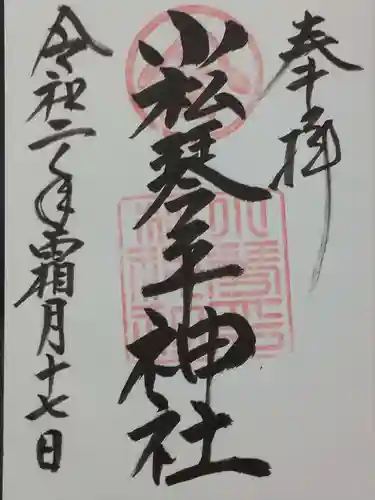 奉拝
小松琴平神社
令和二年霜月十七日